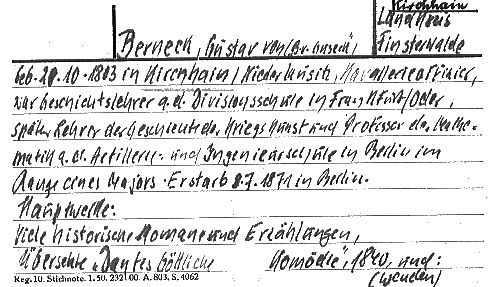 Kirchhain
Landkreis
Finsterwalde
Berneck, Gustav von (Br. Guseck),
Geb. 20.10.1803 in Kirchhain/Niederlausitz, Kavallerieoffizier,
war Geschichtslehrer a.d. Divisionsschule in Frankfurt/Oder,
später Lehrer der Geschichte der Kriegskunst und Professor der Mathe-
matik a.d. Artillerie- und Ingenieurschule in Berlin im
Range eines Majors. Er starb 8.7.1871 in Berlin.
Hauptwerke:
Viele historische Romane und Erzählungen,
Übersetzte „Dantes Göttliche Komödie", 1840, und:
(wenden)
Reg. 10. Stichnote. 1. 50. 232 00. A. 803, S. 4062